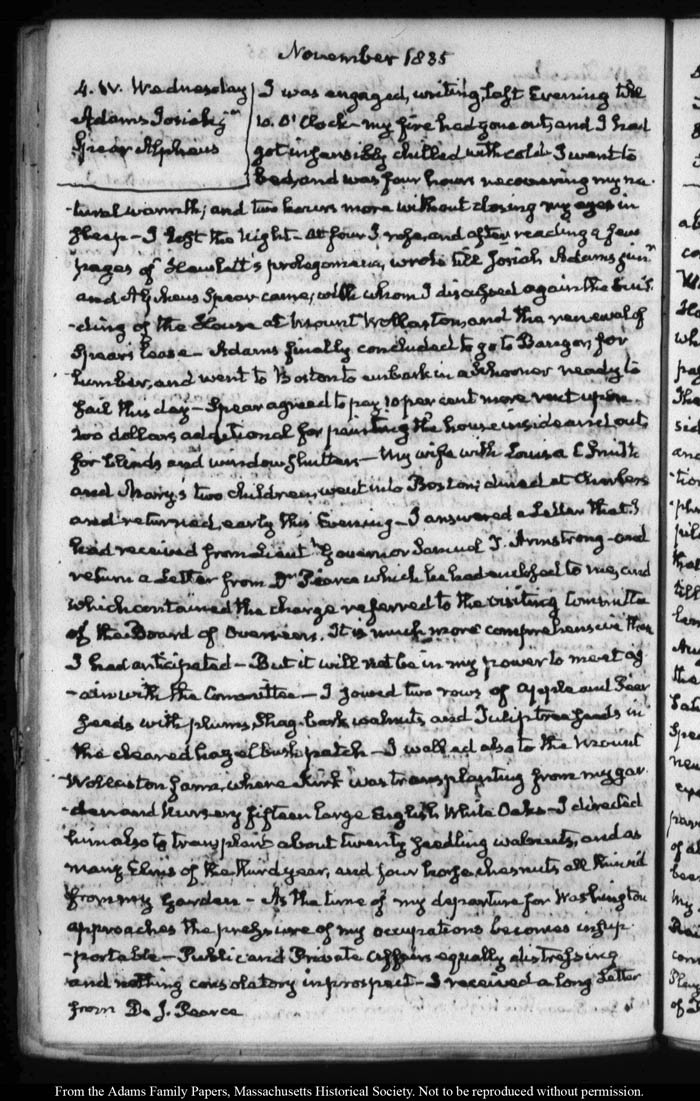 November 1835
4. W. Wednesday
Adams Josiah junr
Spear Alpheus
I was engaged, writing, last Evening till
10. O'Clock - my fire had gone out, and I had
got insensibly chilled with cold - I went to
bed, and was four hours recovering my na-
-tural warmth; and two hours more without closing my eyes in
sleep - I lost the Night - At four I rose, and after reading a few
pages of Hewlett's prolegomena, wrote till Josiah Adams junr
and Alpheus Spear came, with whom I discussed again the
-ding of the House at Mount Wollaston, and the renewal of
Spear's lease - Adams finally concluded to go to Bangor, for
lumber, and went to Boston to embark in a Schooner ready to
sail this day - Spear agreed to pay 10 per cent more rent upon
200 dollars additional for painting the house inside and out,
for blinds and window shutters - My wife with Louisa C Smith
and Mary's two children, went into Boston; dined at Charles's
and returned, early this Evening - I answered a Letter that I
had received from Lieutt Governor Samuel T. Armstrong - and
return a Letter from Dr Pearce which he had enclosed to me, and
which contained the charge referred to the visiting Committee
of the Board of Overseers. It is much more comprehensive than
I had anticipated - But it will not be in my power to meet ag
-ain with the Committee - I sowed two rows of apple and Pear
seeds with plums, Shag-bark walnuts, and Tulip tree seeds in
the cleared hazel bush patch - I walked also to the Mount
Wollaston farm, where Kirk was transplanting from my gar-
-den and Nursery fifteen large English White Oaks - I directed
him also to transplant about twenty seedling walnuts, and as
many Elms of the third year, and four horse chesnuts all thinn'd
from my Garden - As the time of my departure for Washington
approaches the pressure of my occupations becomes insup-
-portable - Public and Private affairs equally distressing
and nothing consolatory in prospect - I received a long Letter
from D. J. Pearce
From the Adams Family Papers, Massachusetts Historical Society. Not to be reproduced without permission.